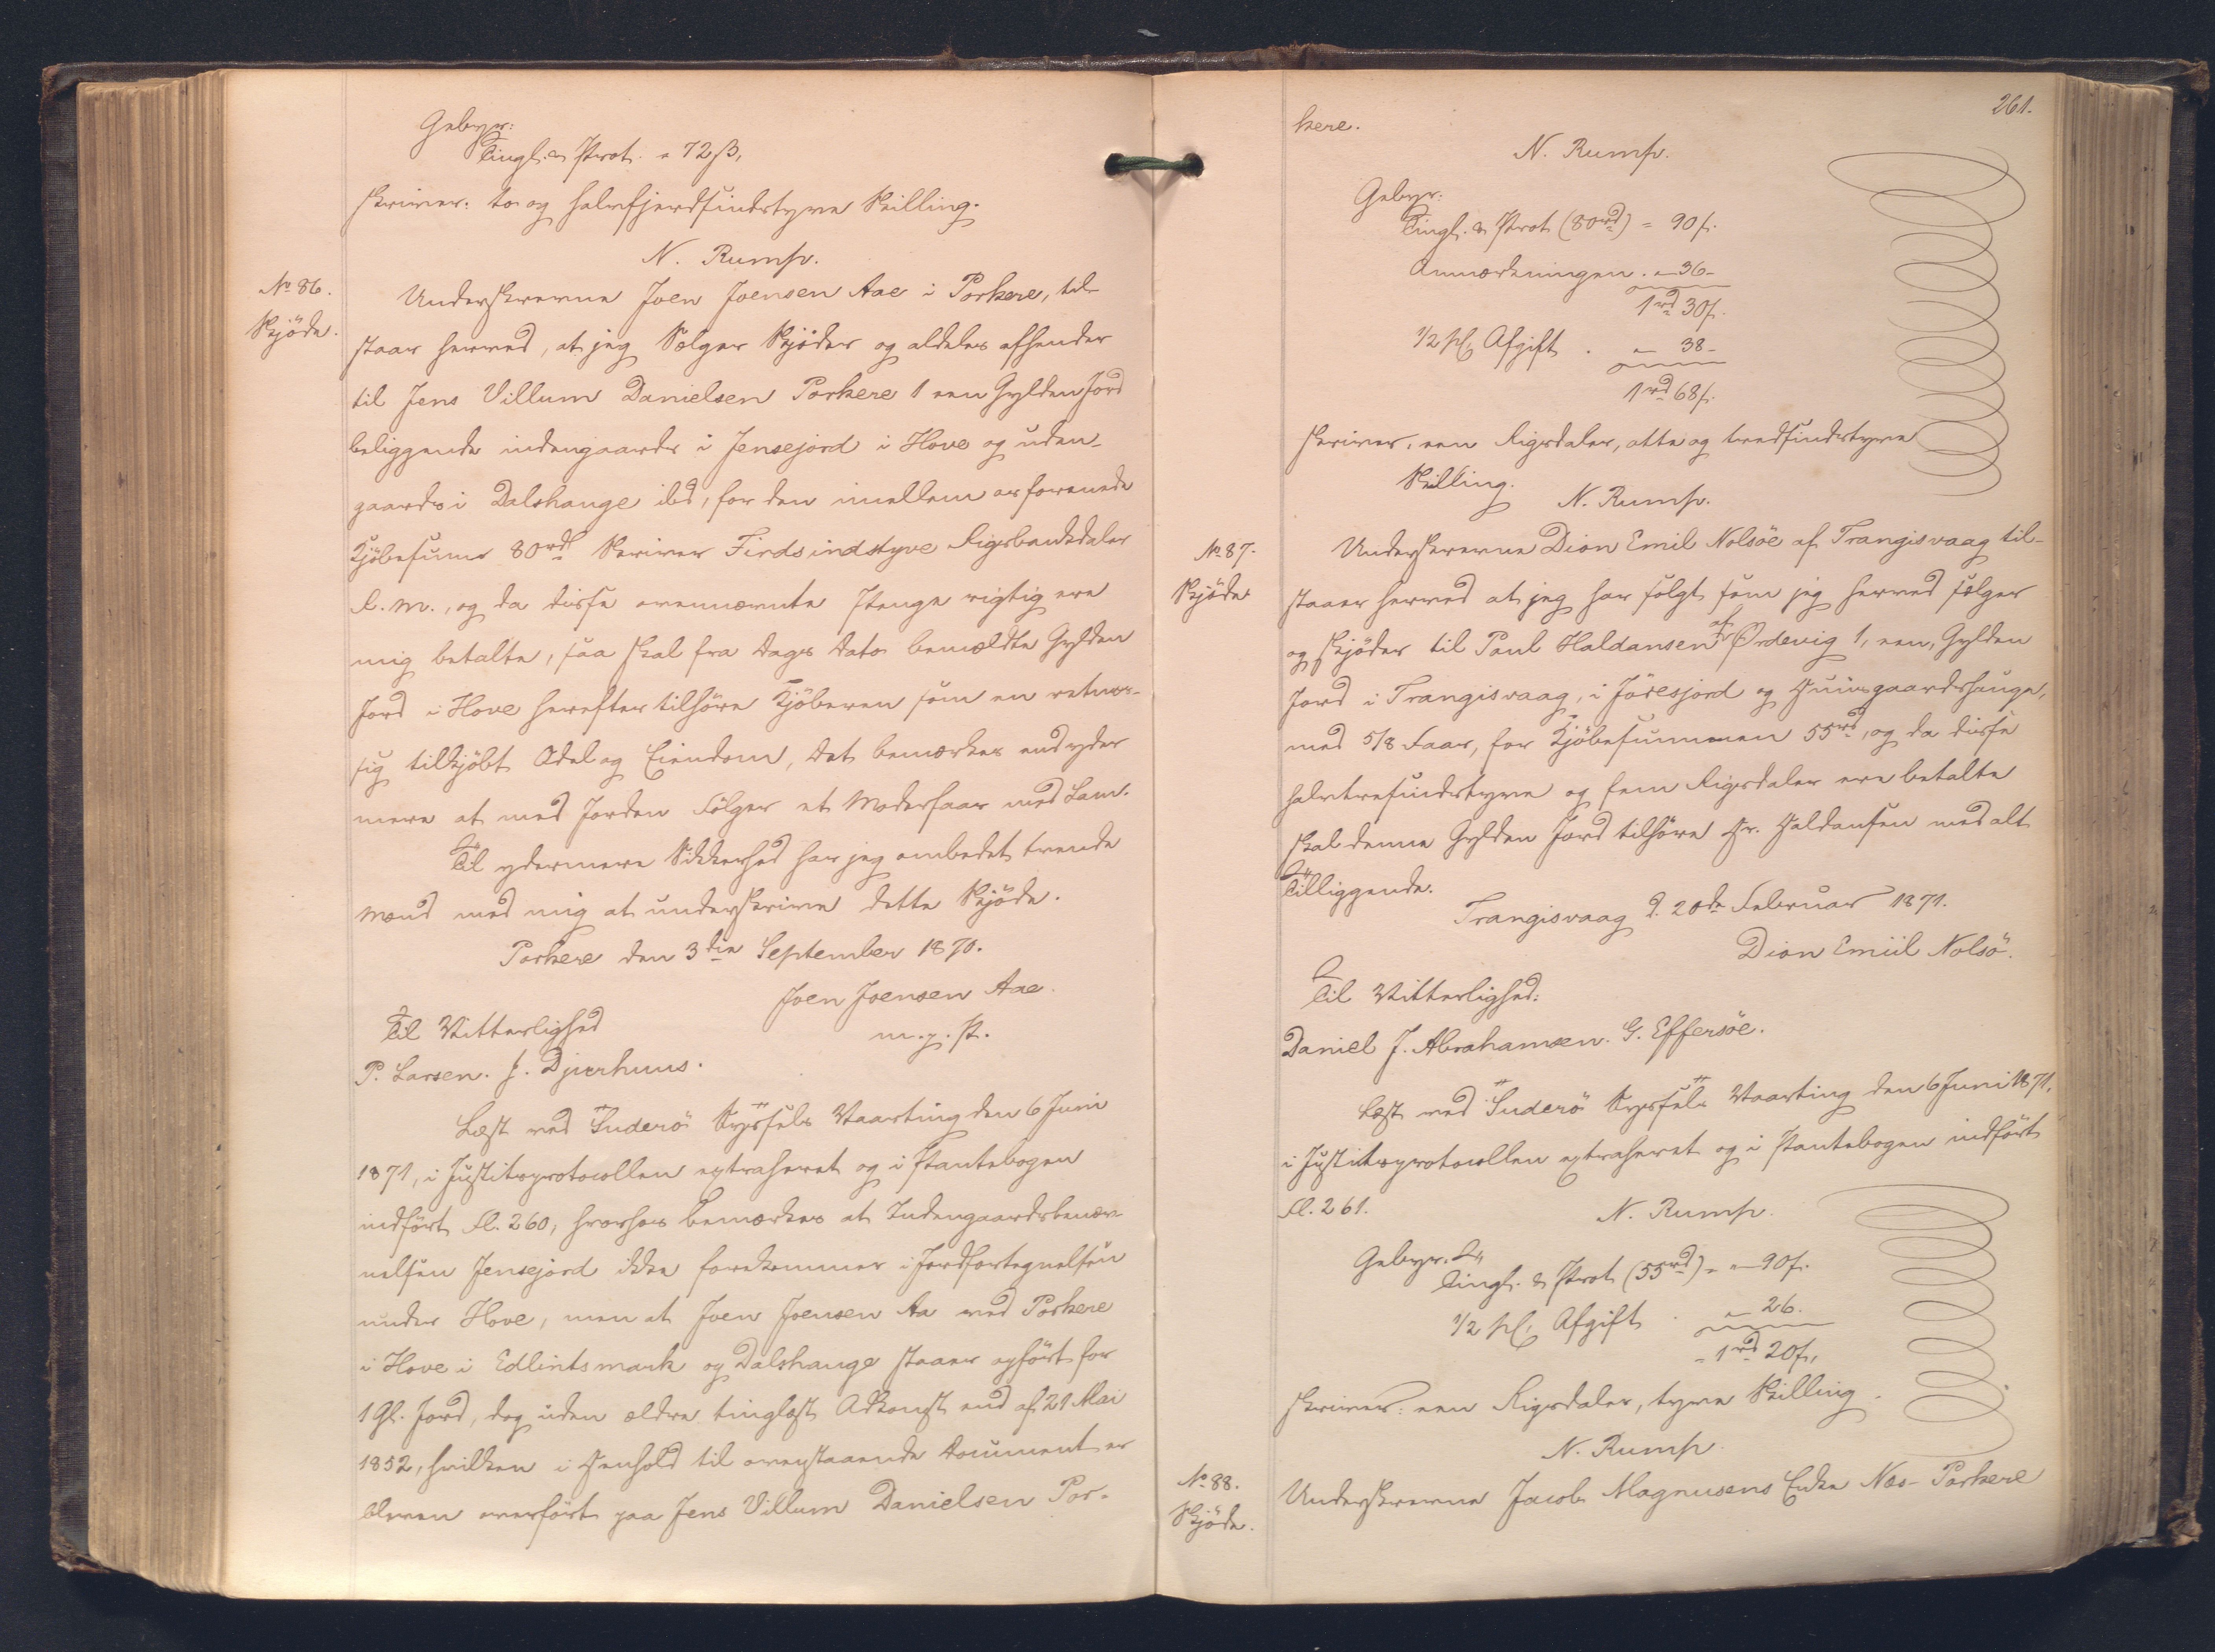 Gebyr:
Tingl. & Prot. " 72 ß,
skriver: to og halvfjerdsindstyve Skilling.
N. Rump.
No 86.
Skjøde.
Underskrevne Joen Joensen Aae i Porkere, til-
staar herved, at jeg Sælger Skjøder og aldeles afhender
til Jens Villum Danielsen Porkere 1 een Gylden Jord
beliggende indengaards i Jensejord i Hove og uden-
gaards i Dalshauge ibd, for den imellem os forenede
Kjöbesum 80rd Skriver Firdsindstyve Rigsbankdaler
R. M., og da disse ovennævnte Penge rigtig ere
mig betalte, saa skal fra Dags Dato bemældte Gylden
Jord i Hove herefter tilhöre Kjöberen som en retmæs-
sig tilkjöbt Odel og Eiendom, Det bemærkes end yder
mere at med Jorden Fölger et Moderfaar med Lam.
Til ydermere Sikkerhed har jeg ombedet trende
Mænd med mig at underskrive dette Skjöde.
Porkere den 3die September 1870.
Joen Joensen Aae.
m. p. P.
Til Vitterlighed
P. Larsen. J. Djurhuus.
Læst ved Suderö Syssels Vaarting den 6 Juni
1871, i Justitsprotocollen extraheret og i Pantebogen
indfört Fl. 260, hvorhos bemærkes at Indengaardsbenæv-
nelsen Jensejord ikke forekommer i Jordfortegnelsen
under Hove, men at Joen Joensen Aa ved Porkere
i Hove i Edlintsmark og Dalshauge staaer opfört for
1 Gl. Jord, dog uden ældre tinglæst Adkomst end af 21 Mai
1852, hvilken i Henhold til ovenstaaende Document er
bleven overfört paa Jens Villum Danielsen Por-
261.
kere.
N. Rump.
Gebyr:
Tingl. & Prot (80rd) = 90 ß.
Anmærkningen . " 36 -
1rd 30 ß.
1/2 pCt Afgift . " 38 -
1rd 68 ß.
skriver, een Rigsdaler, otte og tredsindstyve
Skilling.
N. Rump.
No 87.
Skjöde
Underskrevne Dion Emil Nolsöe af Trangisvaag til-
staaer herved at jeg har solgt som jeg herved sælger
og skjöder til Paul Haldansen af Ördevig 1, een, Gylden
Jord i Trangisvaag, i Jöresjord og Huusgaardshauge,
med 5/8 Faar, for Kjöbesummen 55rd, og da disse
halvtresindstyve og fem Rigsdaler ere betalte
skal denne Gylden Jord tilhöre Hr. Haldansen med alt
Tilliggende.
Trangisvaag d. 20de Februar 1871.
Dion Emiil Nolsö.
Til Vitterlighed:
Daniel J. Abrahamsen. G. Effersöe.
Læst ved Suderö Syssels Vaarting den 6 Juni 1871,
i Justitsprotocollen extraheret og i Pantebogen indfört
Fl. 261.
N. Rump.
Gebyr.
Tingl. & Prot (55rd) " " 90 ß.
1/2 pCt Afgift . " 26.
" 1rd 20 ß,
skriver: een Rigsdaler, tyve Skilling.
N. Rump.
No 88.
Skjöde.
Underskrevne Jacob Magnusens Enke Næs - Porkere